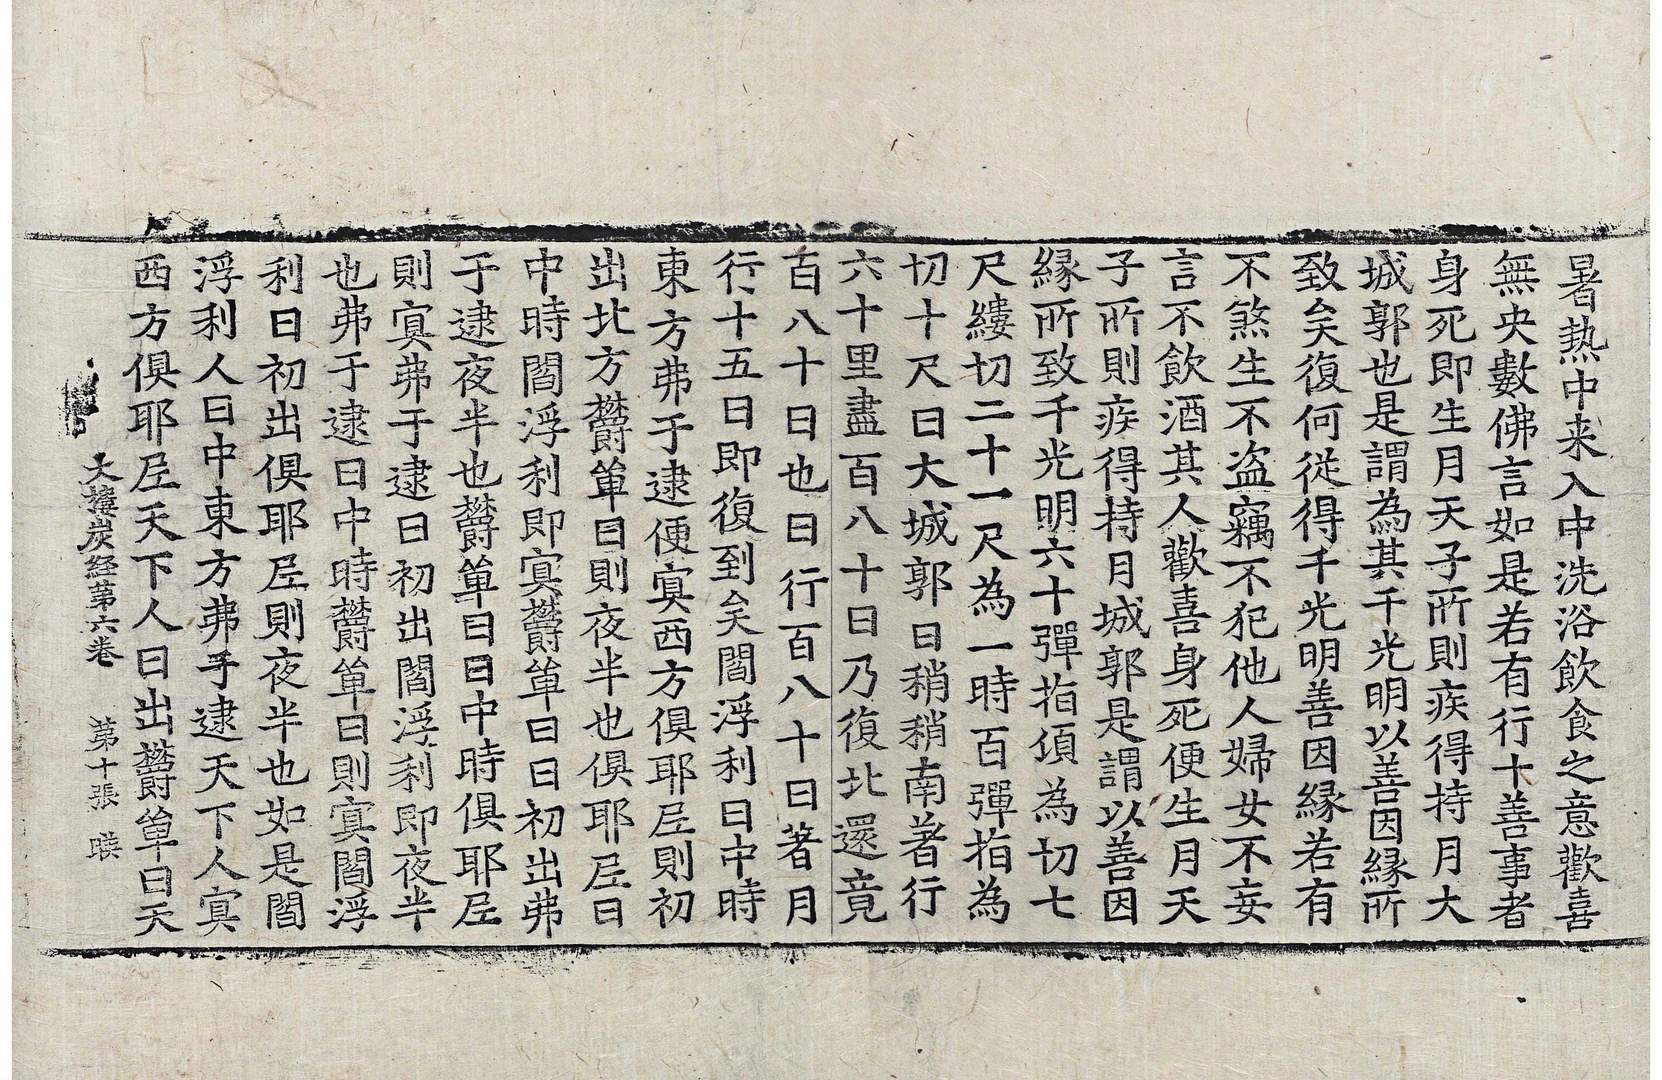 暑熱中来入中洗浴飲食之意歡喜
無央數佛言如是若有行十善事者
身死即生月天子所則疾得持月大
城郭也是謂為其千光明以善因縁所
致矣復何從得千光明善因縁若有
不煞生不盗竊不犯他人婦女不妄
言不飲酒其人歡喜身死便生月天
子所則疾得持月城郭是謂以善因
縁所致千光明六十彈指頃為切七
尺縷切二十一尺為一時百彈指為
切十尺日大城郭日稍稍南著行
六十里盡百八十日乃復北還竟
百八十日也日行百八十日著月
行十五日即復到矣閻浮利日中時
東方弗于逮便冥西方俱耶尼則初
出北方欝單曰則夜半也俱耶尼日
中時閻浮利即冥欝單曰日初出弗
于逮夜半也欝單曰日中時俱耶尼
則冥弗于逮日初出閻浮利即夜半
也弗于逮日中時欝單曰則冥閻浮
利日初出俱耶尼則夜半也如是閻
浮利人日中東方弗于逮天下人冥
西方俱耶尼天下人日出欝單曰天
大樓炭経第六卷 第十張